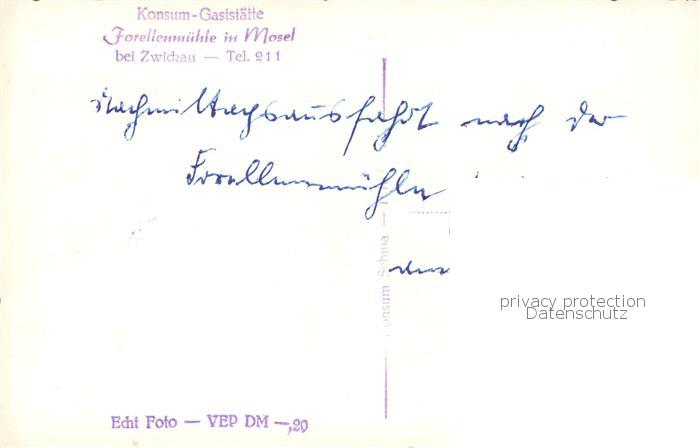 Konsum-Gaststätte
Forellenmühle in Mosel
bei Zwickau — Tel. 211
Nachmittagsausfahrt nach der
Forellenmühle
Konsum Sehma —
privacy protection
Datenschutz
Echt Foto — VEP DM —,20